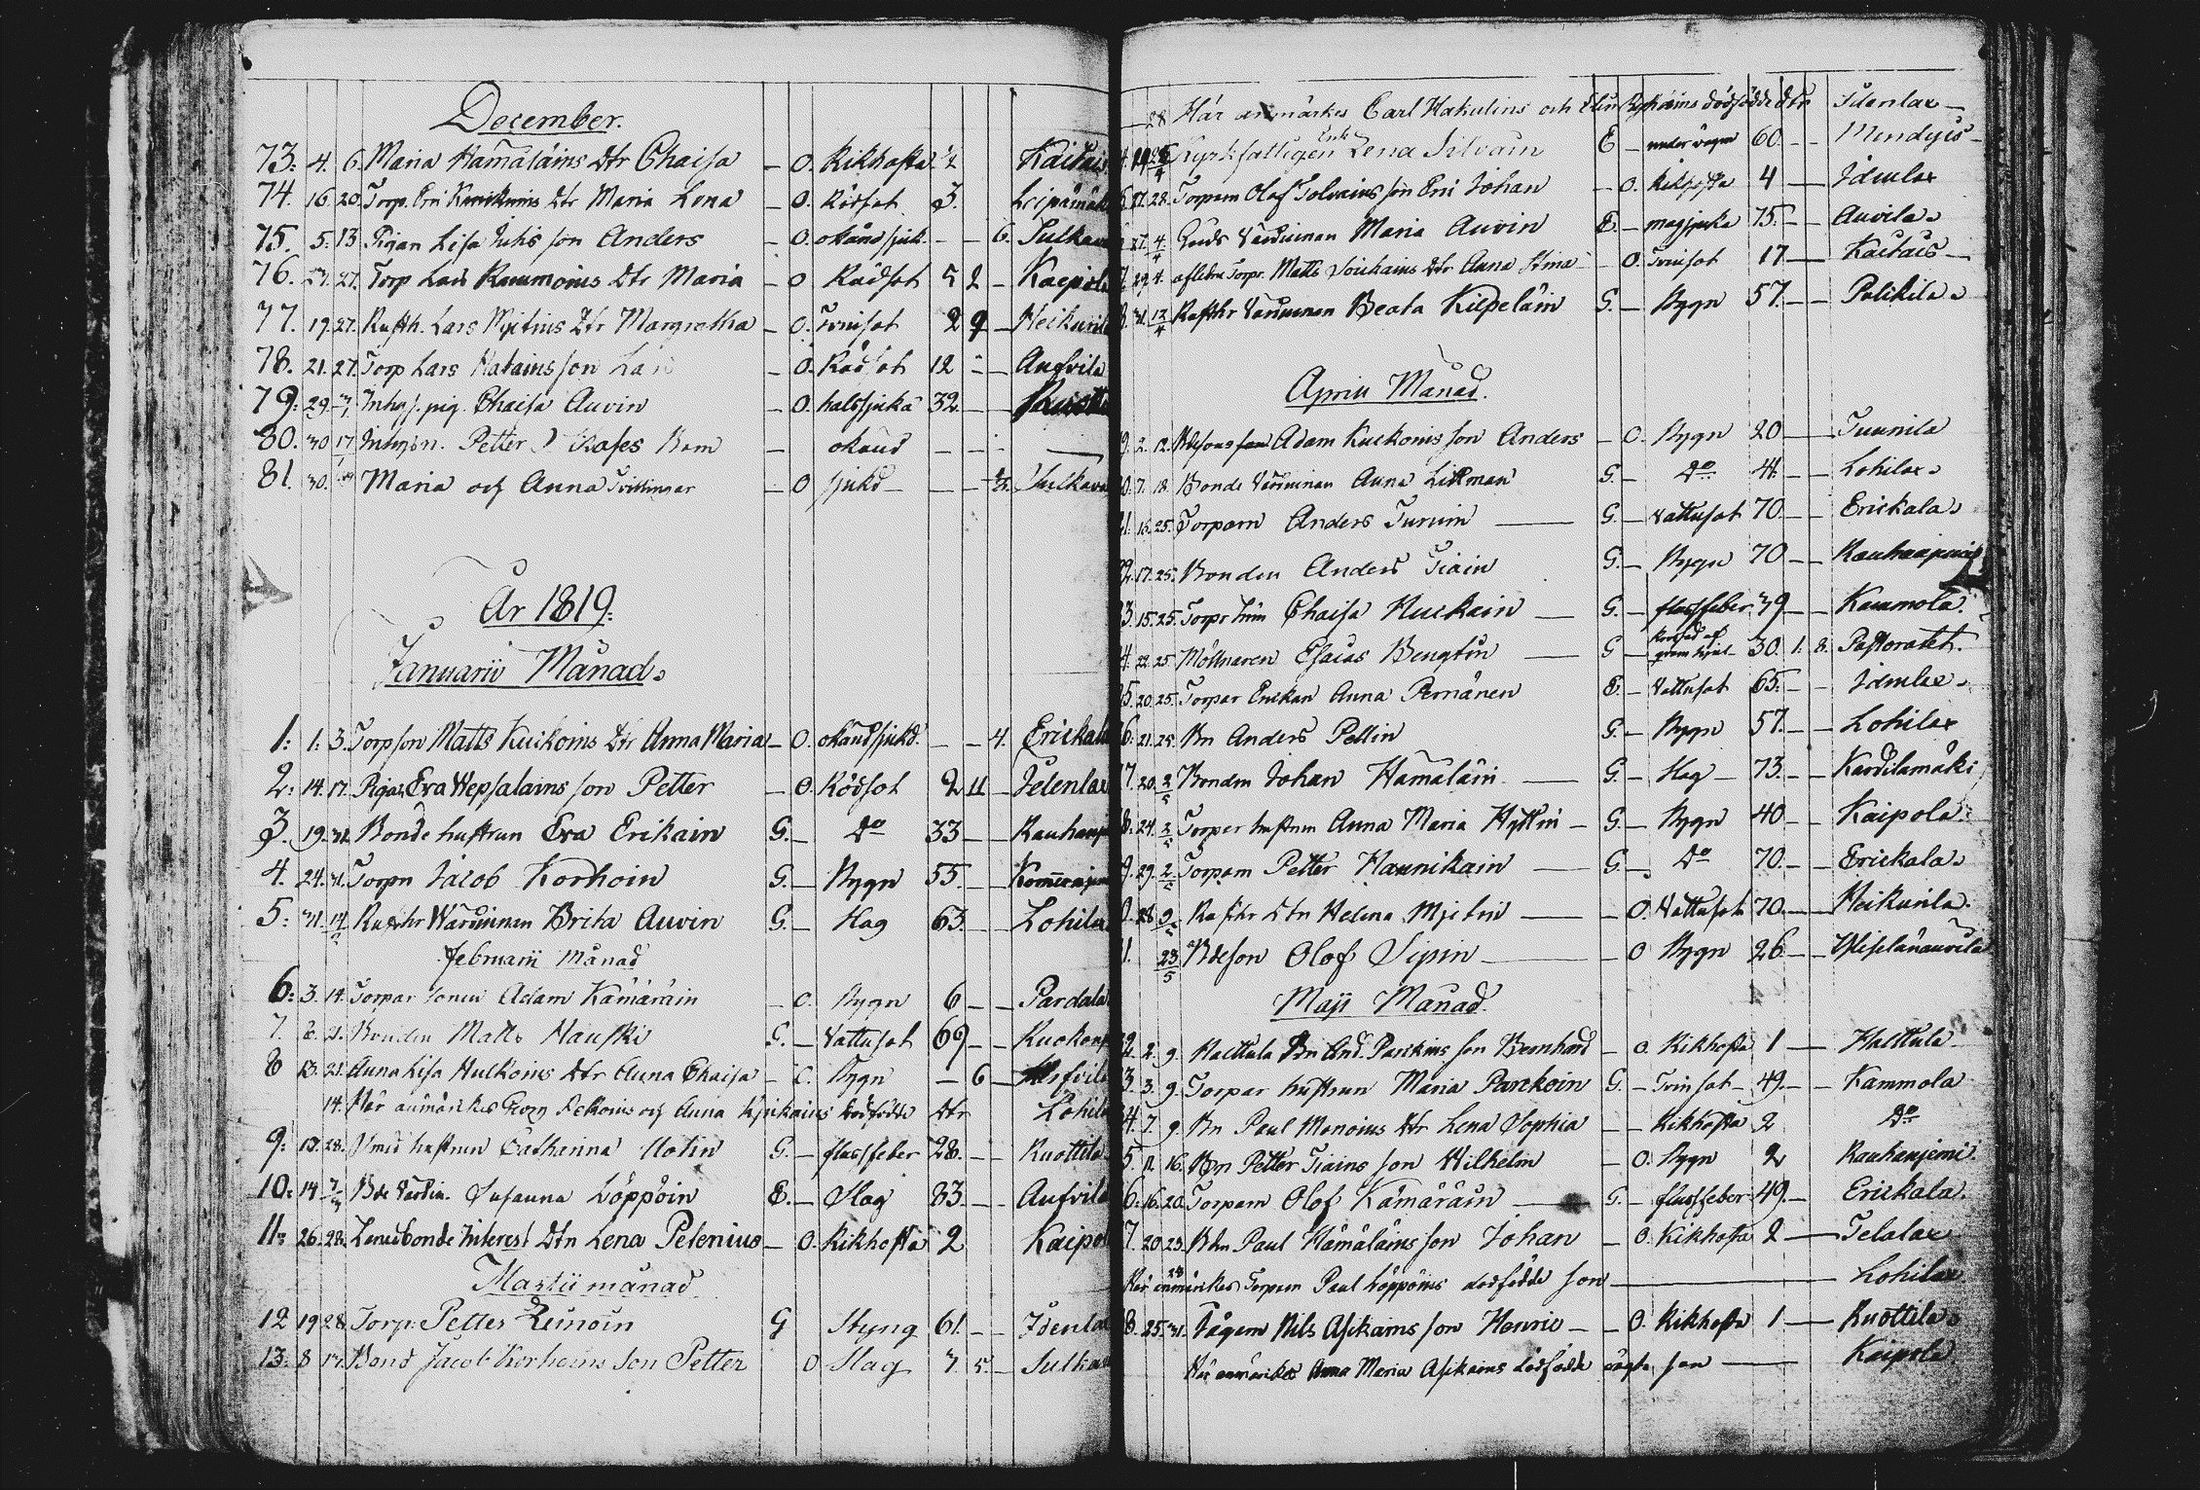 December.
73: 4. 6. Maria Hämäläins Dtr Chaisa – O. Kikhosta ½ Kaitais
74. 16 20. Torp. Eri Karikuins Dtr Maria Lena – O. Rödsot 3.
75. 5. 13 Pigan Lisa Juhis son Anders – O. okänd sjuk. – – 6. Sulkava
76. 27. Torp Lars Rammoins Dtr Maria – O Rödsot 5 2 – Kaepola
77. 19 27. Rusth. Lars Mjitins Dtr Margretha – O. Tvinsot 2 9 – Heikurila
78. 21. 27. Torp Lars Hatains son – O. Rödsot 12 – – Aufvila
79: 29. Inhys. pig. Chaisa Auvin – O. halssjuka 32 – –
80. 30 17 Inhysn. Petter Barn – okänd – –
81. 30. Maria och Anna Tvillingar – O sjukd – – – Sulkava
År 1819:
Januarii Månad.
1: 1: 3. Torpson Matts Kuikoins Dtr Anna Maria – O. okänd sjukd. – – 4. Erickala
2: 14. 17. Pigas Eva Wepsalains son Petter – O. Rödsot 2 11 – Telenlax
3. 19. 31. Bonde hustrun Eva Erikain G. – Do 33 – – Rauhanj
4. 24. 31. Torpn Jacob Korhoin G. – Stygn 55. – –
5: 31. 14/2 Rusthr Wärdinnan Brita Auvin G. – Slag 63. – – Lohilax
Februarii Månad
6: 3. 14. Torpar sonen Adam Kämäräin – O. Stygn 6 – – Pardala
7. 6. 21. Bonden Matts Hauski G. – Vattusot 69 – – Ruokon
8 13. 21. Anna Lisa Hulkoins Dtr Anna Chaisa – O. Stygn – 6 – Aufvila
14. Här anmärkes Georg och Anna dödfödde Dtr Lohila
9: 13. 28. Smed hustrun Catharina Hotin G. – flussfeber 28. – – Ruottila
10: 14 7/3 Bde Värdin. Susanna Löppöin E. – Slag 83. – – Aufvila
11: 26. 28. Lensbonde Interest Dtr Lena Pelenius – O. Kikhosta 2 Kaipola
Martii månad
12 19 28. Torp: Petter Leinoin G Styng 61. – –
13: 8 17. Bond Jacob Korhoins Son Petter O Slag 7. 5. – Sulkava
– 28 Här anmärkes Carl Hakulins och dödfödde Dtr
Kyrkfattigen Enk. Lena Silvain E – under vägen 60. – –
17. 28. Torparn Olof Tolvains son Eric Johan – O. Kikhosta 4 – Idenlax
27. 4/4 Guds Värdinnan Maria Auvin E. – magsjuka 75. – – Auvila.
29. 4. aflidne Torpr. Matts Soickains Dtr Anna Stina – O. Tvinsot 17 – Kaitais –
31. 12/4 Rusthr Värdinnan Beata Kiepeläin G. – Stygn 57. – – Palikila.
April Månad.
9. 2. 12. Bdesons son Adam Kuckonis son Anders – O. Stygn 20 – Tuunila
0. 7. 18. Bonde Värdinnan Anna Lickman G. – Do 41. – – Lohilax.
21. 16. 25. Torparn Anders Turuin – G. – Vattusot 70. – – Erickala.
22. 17. 25. Bonden Anders Tiain G. – Stygn 70 – –
3. 15. 25. Torpr hun Chaisa Huckain – G. – flussfeber 39 – – Kammola.
4. 22. 25 Möllnaren Esaias Bengtin – G – 30. 1. 8. Pastoratet.
5. 20. 25. Torpar Enkan Anna Pernänen E. – Vattusot 65. – – Idenlax.
6. 21. 25. Bn Anders Pellin G. – Stygn 57. – – Lohilax
7. 20. 2/5 Bonden Johan Hämäläin – G. – Slag – 73. – – Kardilamäki
8. 24. 2/5 Torpar hustrun Anna Maria Hyttin – G. – Stygn 40 – – Kaipola.
9. 29. 2/5 Torparn Petter Haunikain – G. – Do 70. – – Erickala.
0. 28 9/5 Rusthr Dtn Helena Mjitin – – O. Vattusot 70. – Heikurila.
1. 23/5 Bdeson Olof Sipin – – O Stygn 26 – –
Maji Månad.
2. 2. 9. Haittula Bn And. Parikins son Bernhard – O. Kikhosta 1 – Haittula
3. 3. 9. Torpar hustrun Maria Parckoin G. – Tvinsot – 49. – – Kammola
4. 7. 9. Bn Paul Manoins Dtr Lena Sophia – – Kikhosta 2 Do
5. 11. 16. Bn Petter Tiains son Wilhelm – O. Stygn 2 Rauhanjemi.
6. 16. 20. Torparn Olof Kämäräin – G. – flussfeber 49. – Erickala.
7. 20. 23. Bn Paul Hämäläins son Johan – O. Kikhosta 2 – Telalax
Här anmärkes 23 Torparn Paul Löppöins dödfödde son – Lohilax
8. 25. 31. Nils Asikains son Henric – – O. Kikhosta 1 – Ruottila.
Här anmärkes Anna Maria Asikains dödfödde oägta son – Kaipola